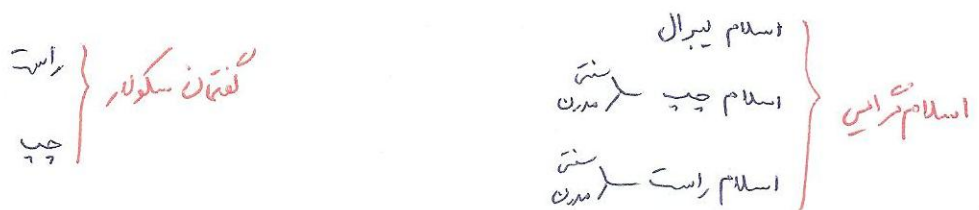 اسلام گرایی
اسلام لیبرال
اسلام چپ
سنتی
مدرن
اسلام راست
سنتی
مدرن
گفتمان سکولار
راست
چپ